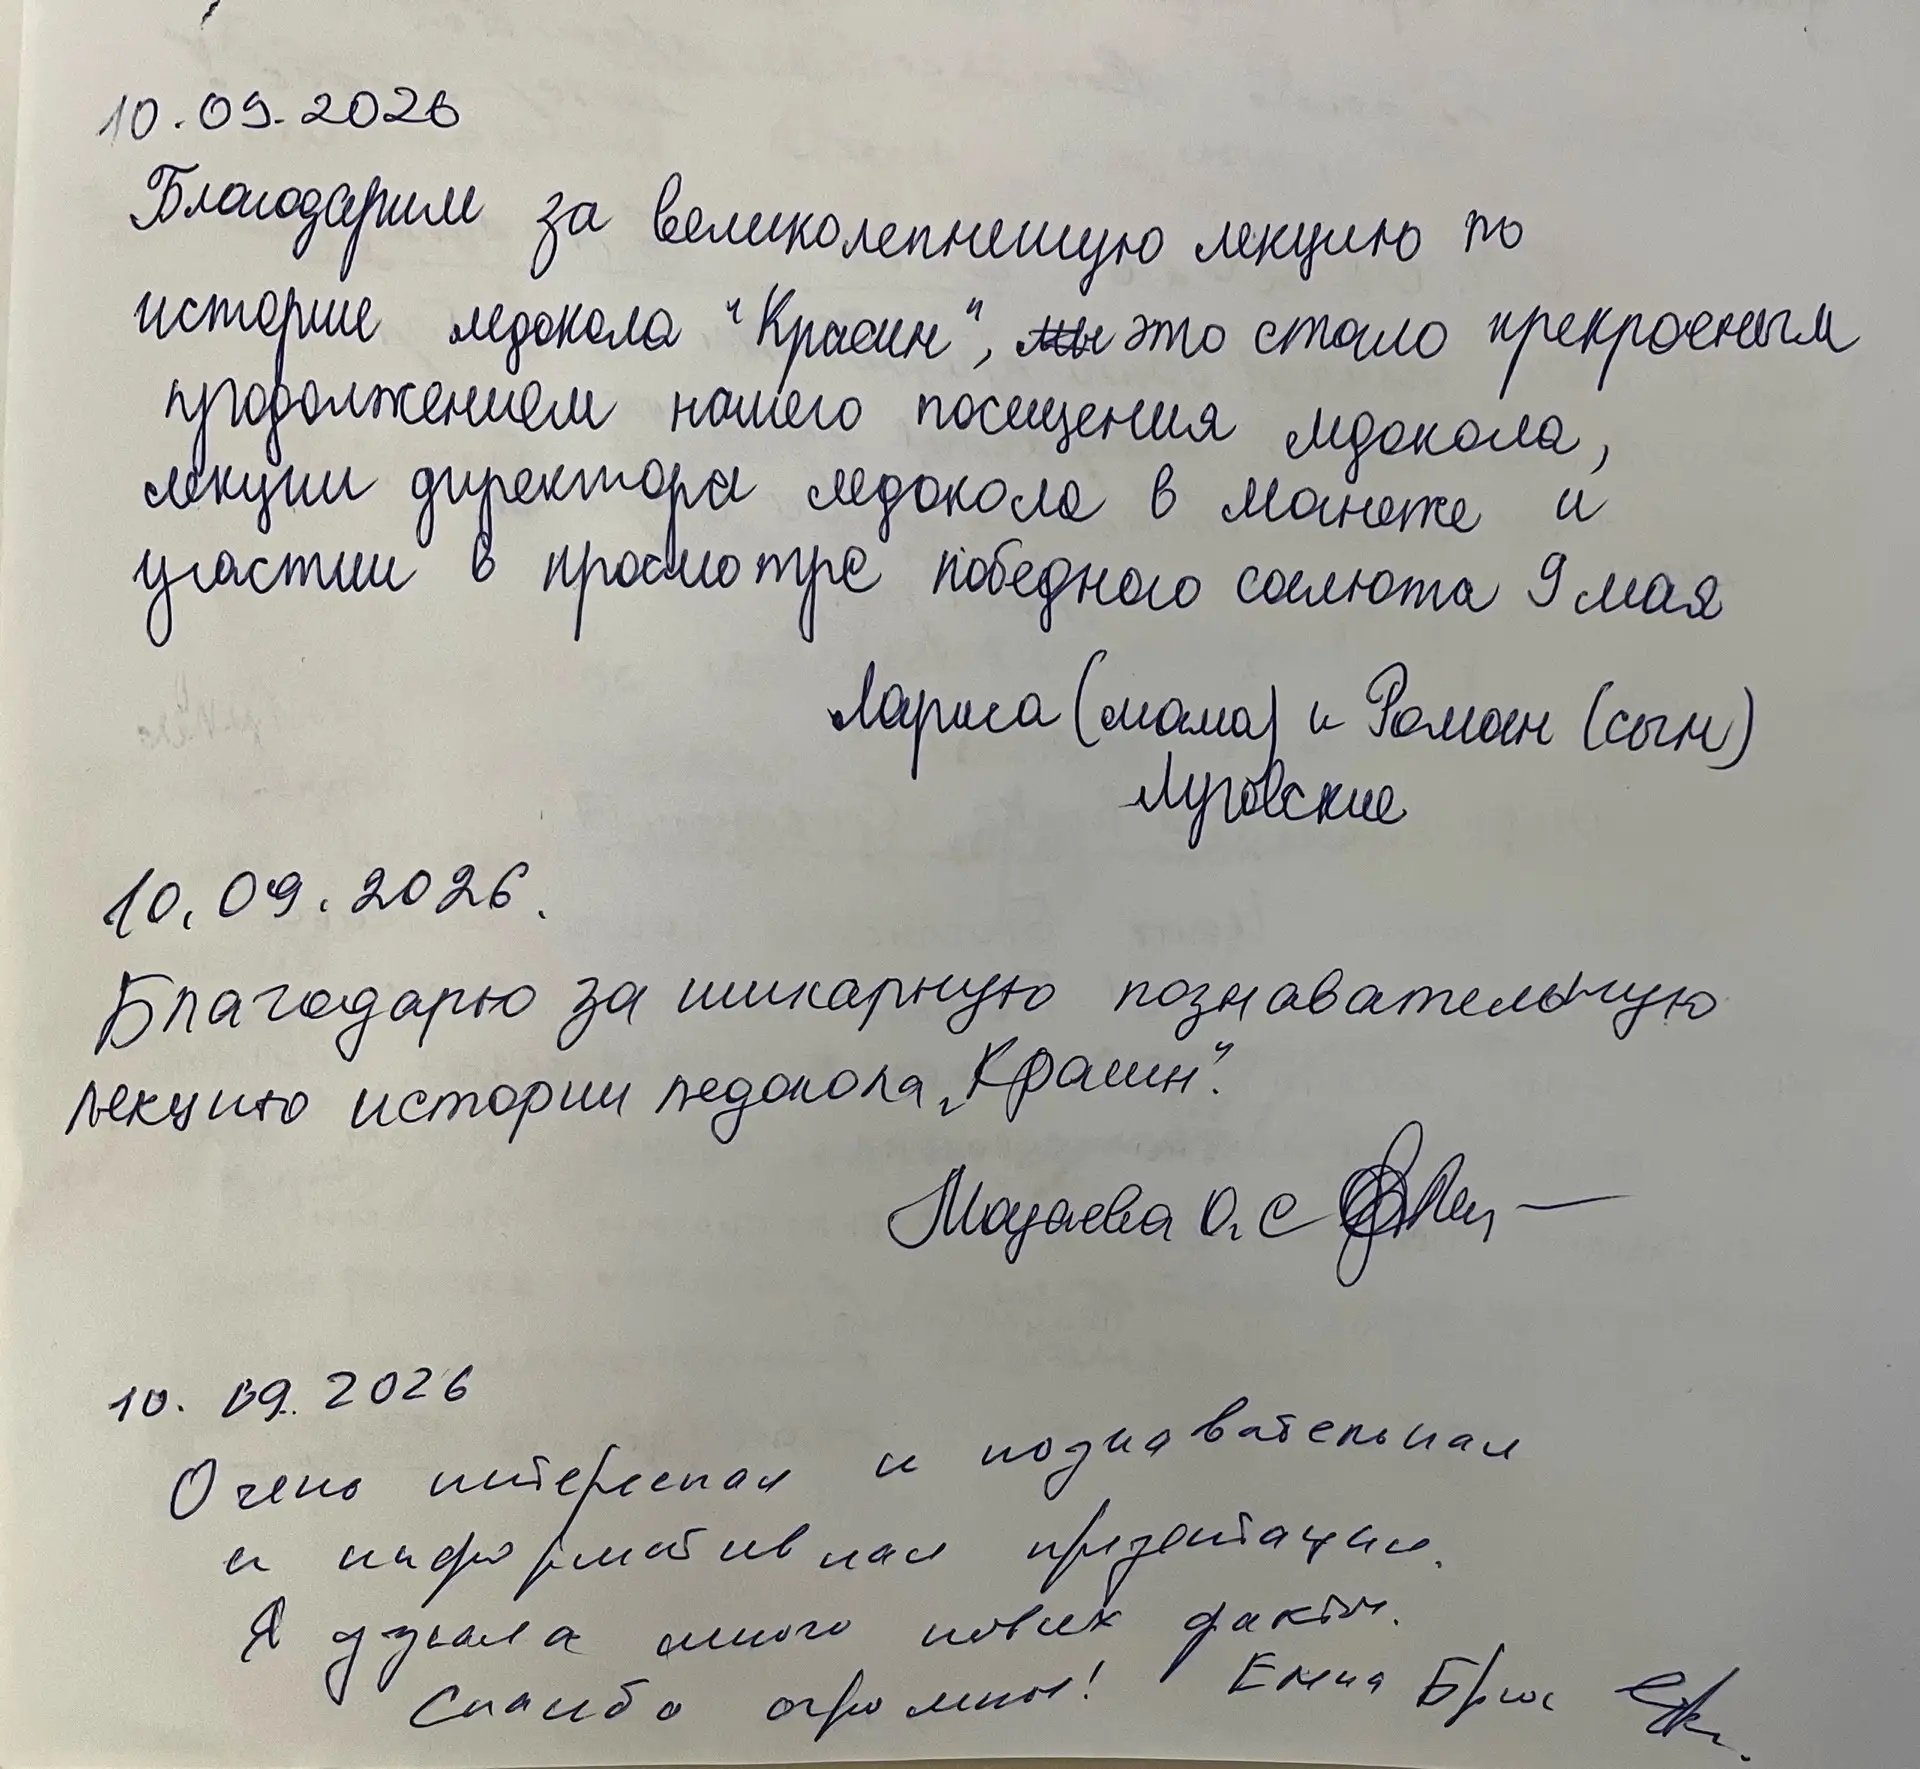 10.09.2026
Благодарим за великолепнейшую лекцию по
истории ледокола "Красин", мы это стало прекрасным
продолжением нашего посещения ледокола,
лекции директора ледокола в Манеже и
участии в просмотре победного салюта 9 мая
Лариса (мама) и Роман (сын)
Луговские
10.09.2026.
Благодарю за шикарную познавательную
лекцию истории ледокола „Красин".
О. С
10.09.2026
Очень интересная и познавательная
и информативная презентация.
Я узнала много новых фактов.
Спасибо огромное! Елена